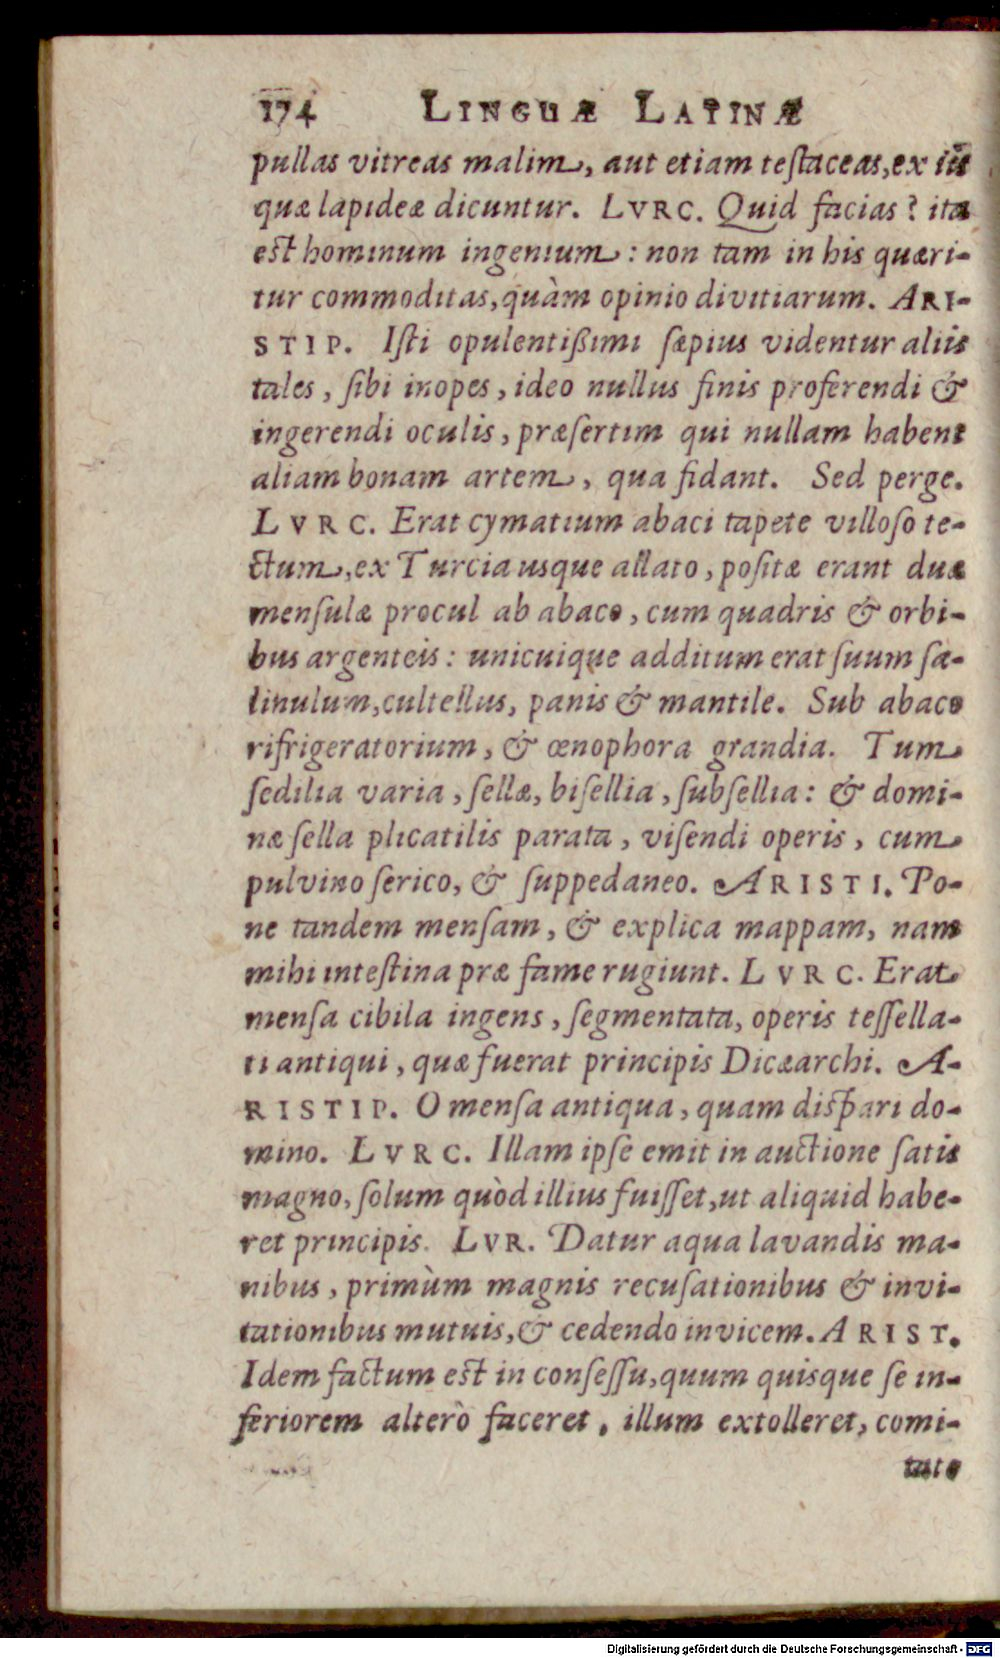 174 LINGUÆ LATINÆ
pullas vitreas malim, aut etiam teſtaceas, ex iis
quæ lapideæ dicuntur. LVRC. Quid facias? ita
eſt hominum ingenium: non tam in his quæri-
tur commoditas, quàm opinio divitiarum. ARI-
STIP. Iſti opulentißimi ſæpius videntur aliis
tales, ſibi inopes, ideo nullus finis proferendi &
ingerendi oculis, præſertim qui nullam habent
aliam bonam artem, qua fidant. Sed perge.
LVRC. Erat cymatium abaci tapete villoſo te-
ctum, ex Turcia usque allato, poſitæ erant duæ
menſulæ procul ab abaco, cum quadris & orbi-
bus argenteis: unicuique additum erat ſuum ſa-
linulum, cultellus, panis & mantile. Sub abaco
rifrigeratorium, & œnophora grandia. Tum
ſedilia varia, ſellæ, biſellia, ſubſellia: & domi-
næ ſella plicatilis parata, viſendi operis, cum
pulvino ſerico, & ſuppedaneo. ARISTI. Po-
ne tandem menſam, & explica mappam, nam
mihi inteſtina præ fame rugiunt. LVRC. Erat
menſa cibila ingens, ſegmentata, operis teſſella-
ti antiqui, quæ fuerat principis Dicæarchi. A-
RISTIP. O menſa antiqua, quam diſpari do-
mino. LVRC. Illam ipſe emit in auctione ſatis
magno, ſolum quòd illius fuiſſet, ut aliquid habe-
ret principis. LVR. Datur aqua lavandis ma-
nibus, primùm magnis recuſationibus & invi-
tationibus mutuis, & cedendo invicem. ARIST.
Idem factum eſt in conſeſſu, quum quisque ſe in-
feriorem alterò faceret, illum extolleret, comi-
tate
Digitalisierung gefördert durch die Deutsche Forschungsgemeinschaft - DFG